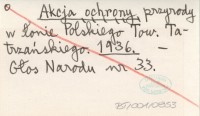 Akcja ochrony przyrody
w łonie Polskiego Tow. Ta-
trzańskiego. 1936. —
Głos Narodu nr 33.